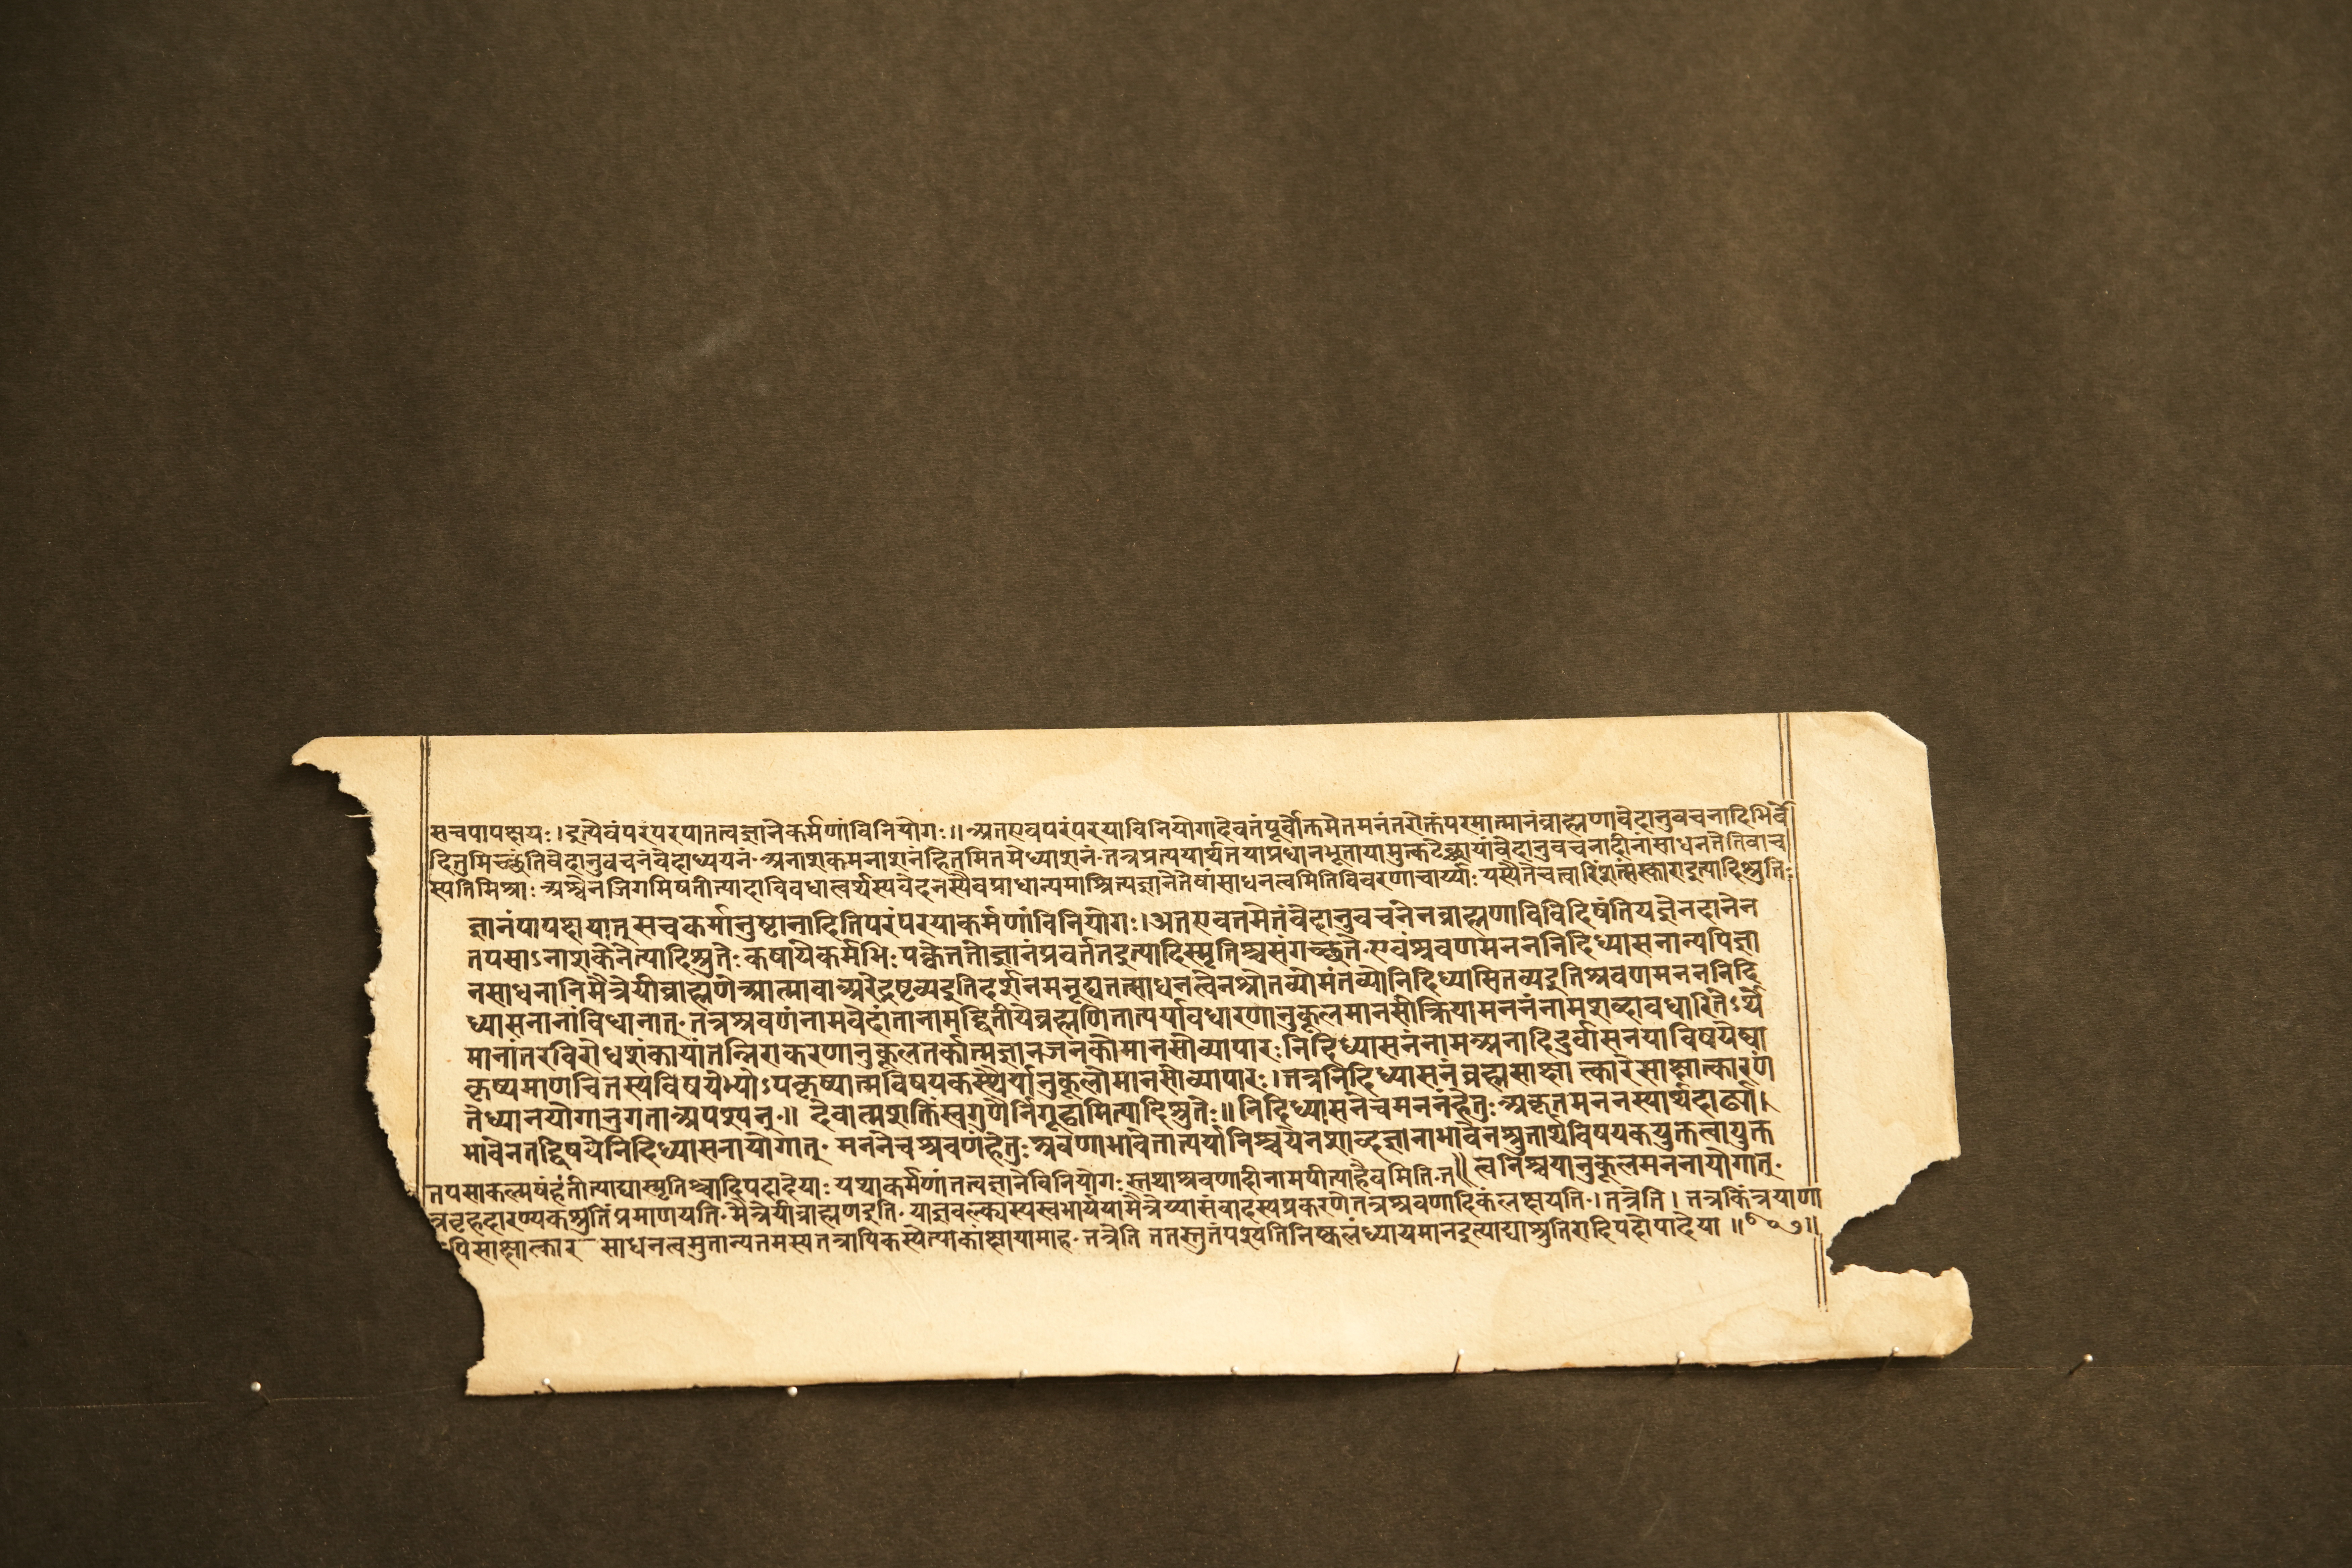 सचपापक्षयः।इत्येवंपरंपरयातत्वज्ञानेकर्मणांविनियोगः॥अतएवपरंपरयाविनियोगादेवतंपूर्वोक्तमेतमनंतरोक्तंपरमात्मानंब्राह्मणावेदानुवचनादिभिर्वे
दितुमिच्छंतिवेदानुवचनंवेदाध्ययनं·अनाशकमनाशनंहितमितमेध्याशनं·तत्रप्रत्ययार्थतयाप्रधानभूतायामुत्कंटेच्छायांवेदानुवचनादीनांसाधनतेतिवाच
स्पतिमिश्राः·अश्वेनजिगमिषतीत्यादाविवधात्वर्थस्यवेदनस्यैवप्राधान्यमाश्रित्यज्ञानेतेषांसाधनत्वमितिविवरणाचार्य्याः·यस्यैतेचत्वारिंशत्संस्काराइत्यादिश्रुतिः
ज्ञानंपापक्षयात्सचकर्मानुष्टानादितिपरंपरयाकर्मणांविनियोगः।अतएवतमेतंवेदानुवचनेनब्राह्मणाविविदिषंतियज्ञेनदानेन
तपसाऽनाशकेनेत्यादिश्रुतेः·कषायेकर्मभिःपक्वेततोज्ञानंप्रवर्ततइत्यादिस्मृतिश्चसंगच्छते·एवंश्रवणमनननिदिध्यासनान्यपिज्ञा
नसाधनानिमैत्रेयीब्राह्मणेआत्मावाअरेद्रष्टव्यइतिदर्शनमनूद्यतत्साधनत्वेनश्रोतव्योमंतव्योनिदिध्यासितव्यइतिश्रवणमनननिदि
ध्यासनानांविधानात्·तत्रश्रवणंनामवेदांतानामद्वितीयेब्रह्मणितात्पर्यावधारणानुकूलमानसीक्रियामननंनामशब्दावधारितेऽर्थे
मानांतरविरोधशंकायांतन्निराकरणानुकूलतर्कात्मज्ञानजनकोमानसोव्यापारः·निदिध्यासनंनामअनादिदुर्वासनयाविषयेष्वा
कृष्यमाणचितस्यविषयेभ्योऽपकृष्यात्मविषयकस्थैर्यानुकूलोमानसोव्यापारः।तत्रनिदिध्यासनंब्रह्मसाक्षात्कारेसाक्षात्कारणं
तेध्यानयोगानुगताअपश्यन्·॥ देवात्मशक्तिंस्वगुणैर्निगूढामित्यादिश्रुतेः॥निदिध्यासनेचमननंहेतुः·अकृतमननस्यार्थदार्ढ्या।
भावेनतद्विषयेनिदिध्यासनायोगात्· मननेचश्रवणंहेतुःश्रवणाभावेतात्पर्यानिश्चयेनशाब्दज्ञानाभावेनश्रुतार्थविषयकयुक्तत्वायुक्त
त्वनिश्चयानुकूलमननायोगात्·
तपसाकल्मषंहंतीत्याद्यास्मृतिश्चादिपदादेयाः·यथाकर्मणांतत्वज्ञानेविनियोगःस्तथाश्रवणादीनामपीत्याहैवमिति·त॥
त्रबृहदारण्यकश्रुतिंप्रमाणयति·मैत्रेयीब्राह्मणइति·याज्ञवल्क्यस्यस्वभार्ययामैत्रेय्यासंवादस्यप्रकरणेतत्रश्रवणादिकंलक्षयति·।तत्रेति।तत्रकिंत्रयाणा
पिसाक्षात्कार साधनत्वमुतान्यतमस्यतत्रापिकस्येत्याकांक्षायामाह·तत्रेति ततस्तुतंपश्यतिनिष्कलंध्यायमानइत्याद्याश्रुतिरादिपदोपादेया॥